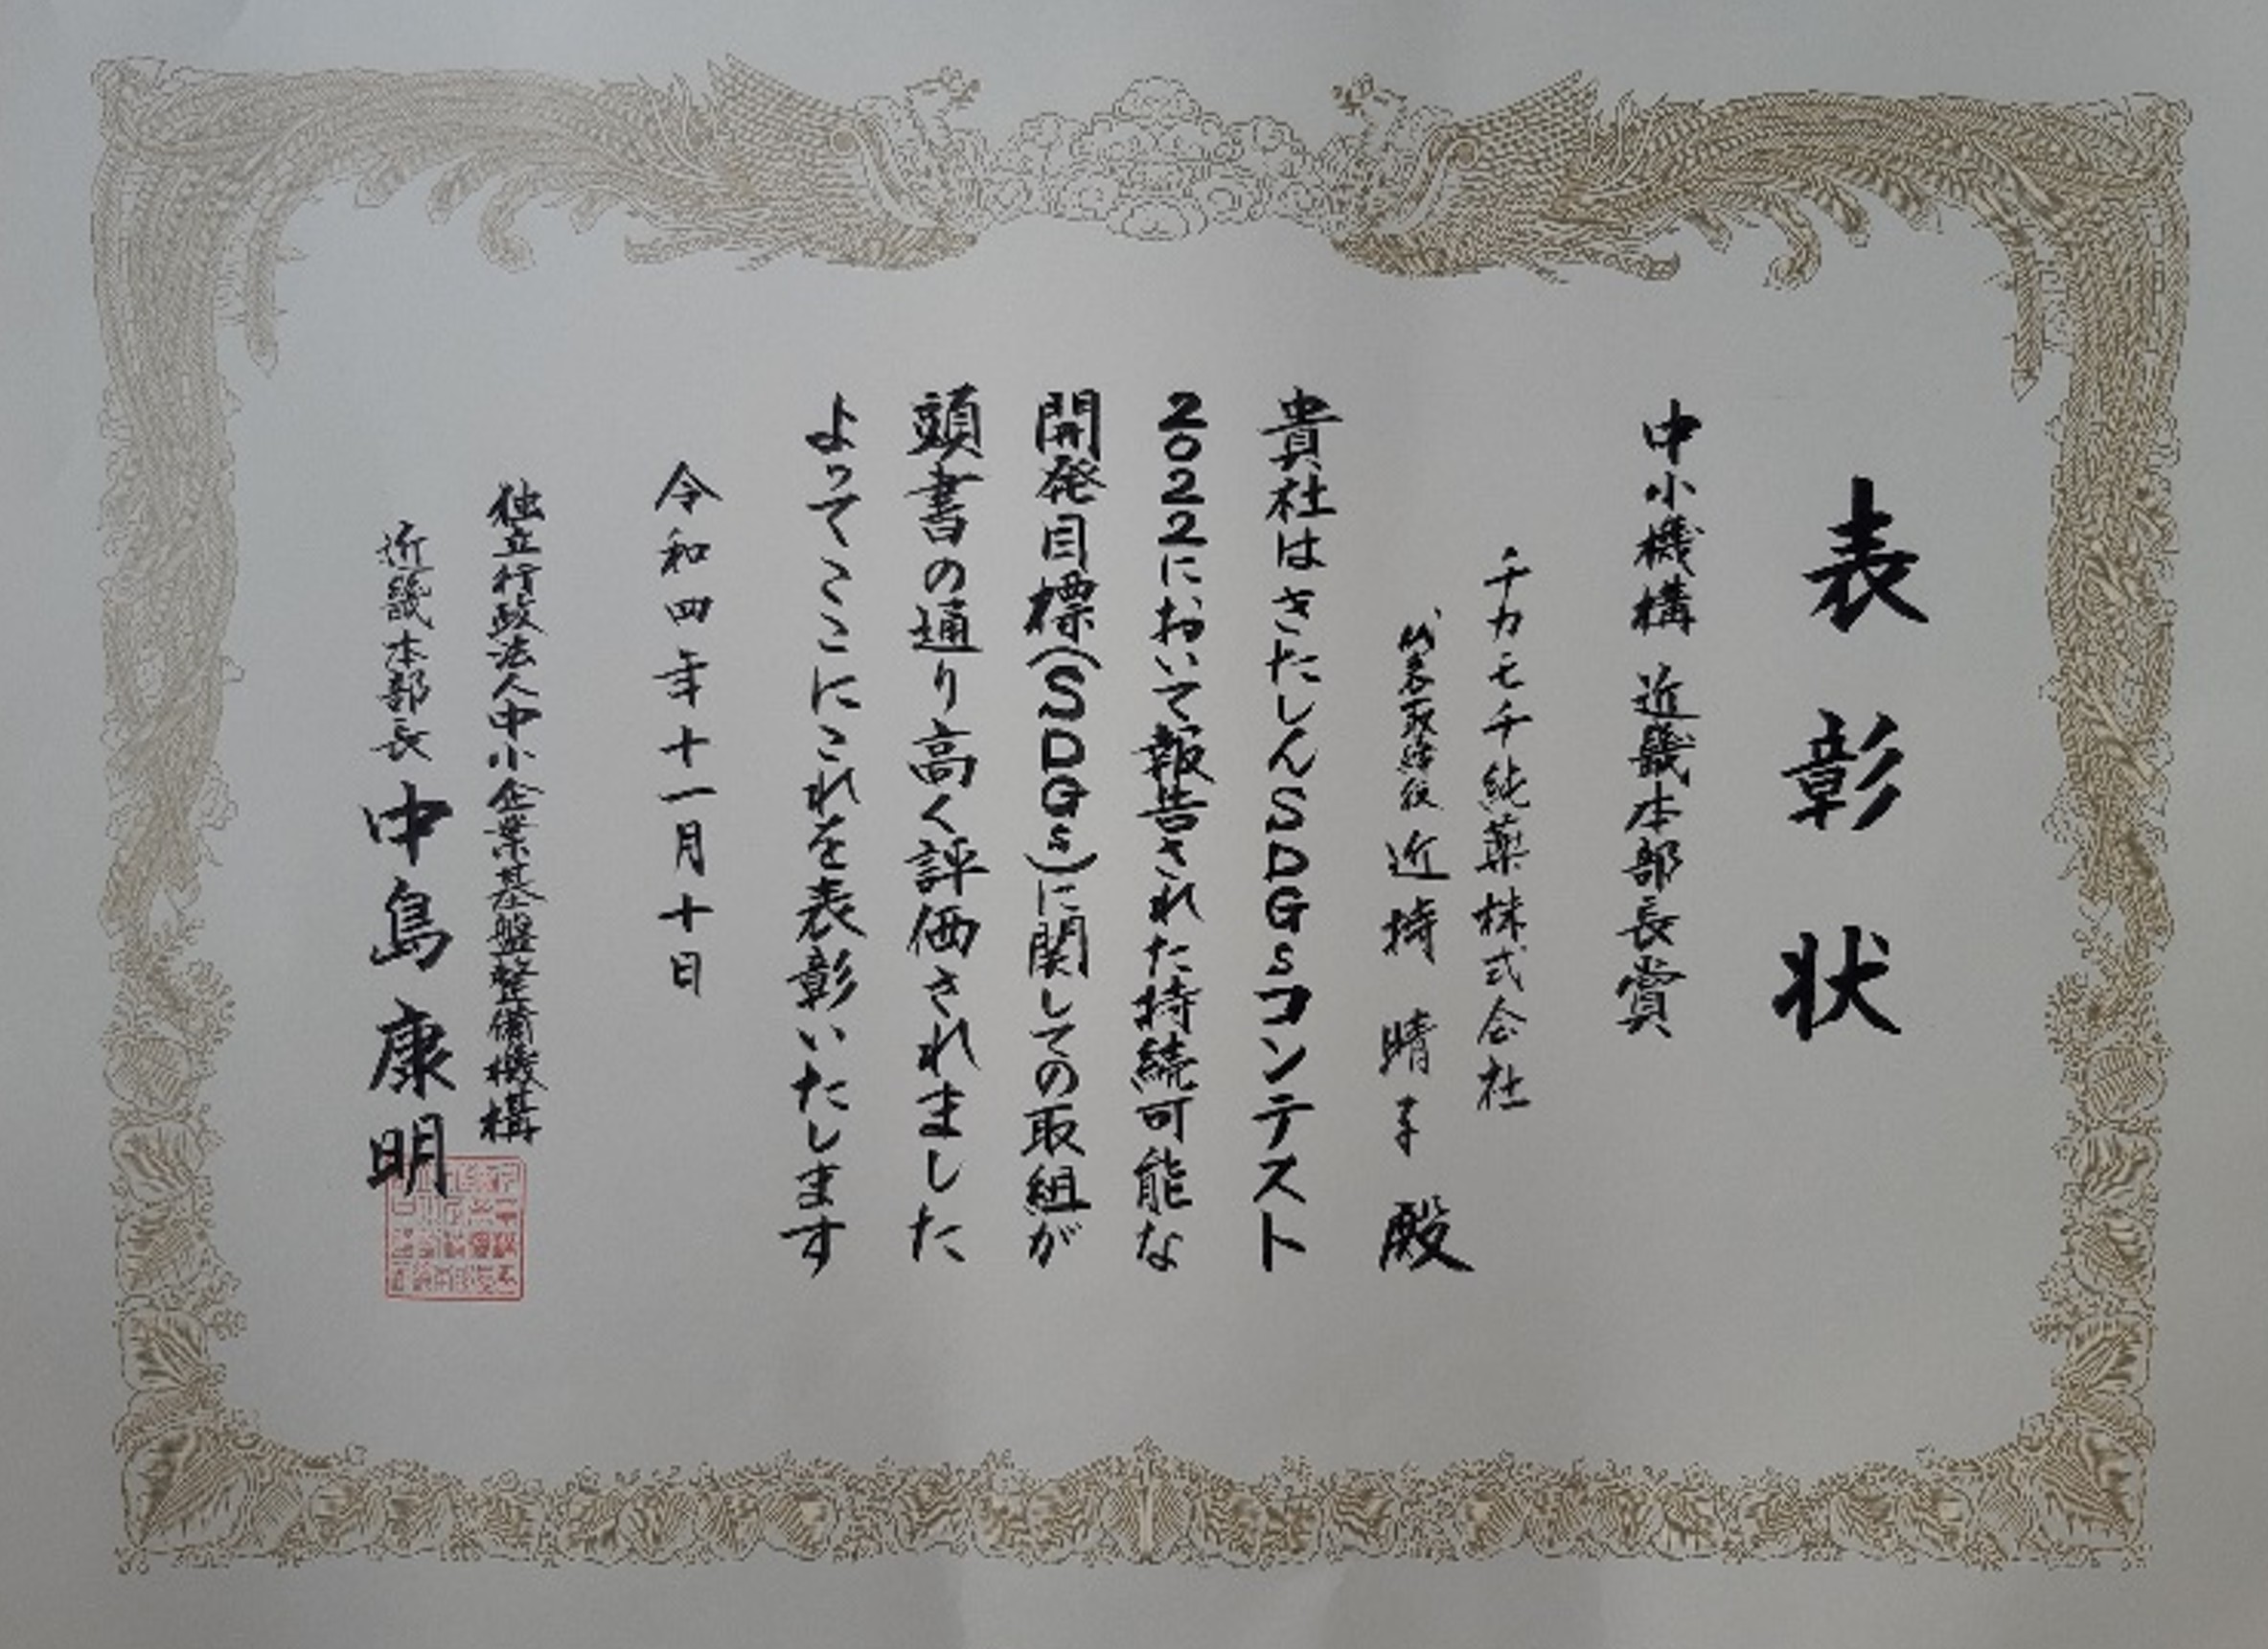 表彰状
中小機構 近畿本部長賞
チカモチ純薬株式会社
代表取締役 近持 晴子 殿
貴社はきたしんSDGsコンテスト
2022において報告された持続可能な
開発目標(SDGs)に関しての取組が
頭書の通り高く評価されました
よってここにこれを表彰いたします
令和四年十一月十日
独立行政法人中小企業基盤整備機構
近畿本部長 中島康明